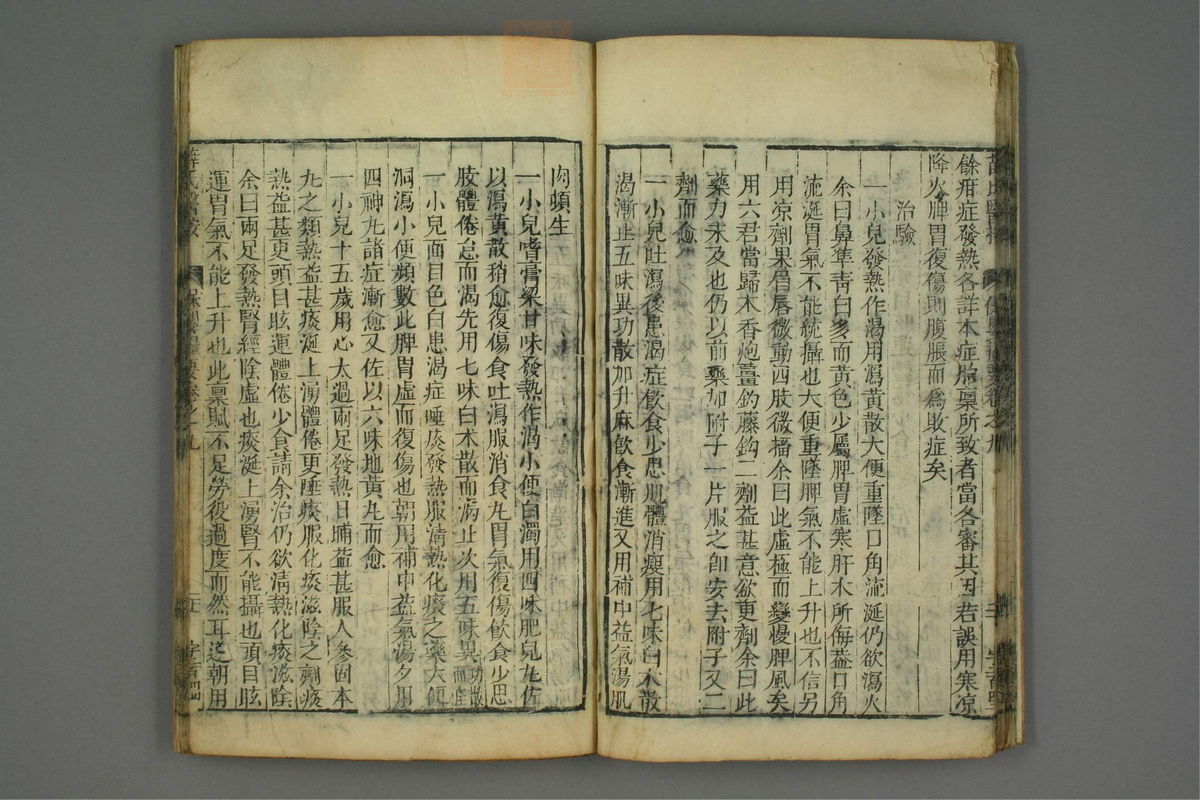 餘疳症發熱各詳本症胎稟所致者當各審其因若誤用寒凉
降火脾胃復傷則腹脹而為敗症矣
治驗
一小兒發熱作渴用瀉黃散大便重墜口角流涎仍欲瀉火
余曰鼻準青白多而黃色少屬脾胃虛寒肝木所侮蓋口角
流涎胃氣不能統攝也大便重墜脾氣不能上升也不信另
用凉劑果眉唇微動四肢微搐余曰此虛極而變慢脾風矣
用六君當歸木香炮薑釣藤鈎二劑益甚意欲更劑余曰此
藥力未及也仍以前藥加附子一片服之即安去附子又二
劑而愈
一小兒吐瀉後患渴症飲食少思肌體消瘦用七味白朮散
渴漸止五味異功散加升麻飲食漸進又用補中益氣湯肌
肉頓生
一小兒嗜膏粱甘味發熱作渴小便白濁用四味肥兒丸佐
以瀉黃散稍愈復傷食吐瀉服消食丸胃氣復傷飲食少思
肢體倦怠而渴先用七味白朮散而渴止次用五味異功散而痊
一小兒面目色白患渴症唾痰發熱服清熱化痰之藥大便
洞瀉小便頻數此脾胃虛而復傷也朝用補中益氣湯夕用
四神丸諸症漸愈又佐以六味地黃丸而愈
一小兒十五歲用心太過兩足發熱日晡益甚服人參固本
丸之類熱益甚痰涎上湧體倦更唾痰服化痰滋陰之劑痰
熱益甚更頭目眩運體倦少食請余治仍欲清熱化痰滋陰
余曰兩足發熱腎經陰虛也痰涎上湧腎不能攝也頭目眩
運胃氣不能上升也此稟賦不足勞役過度而然耳遂朝用